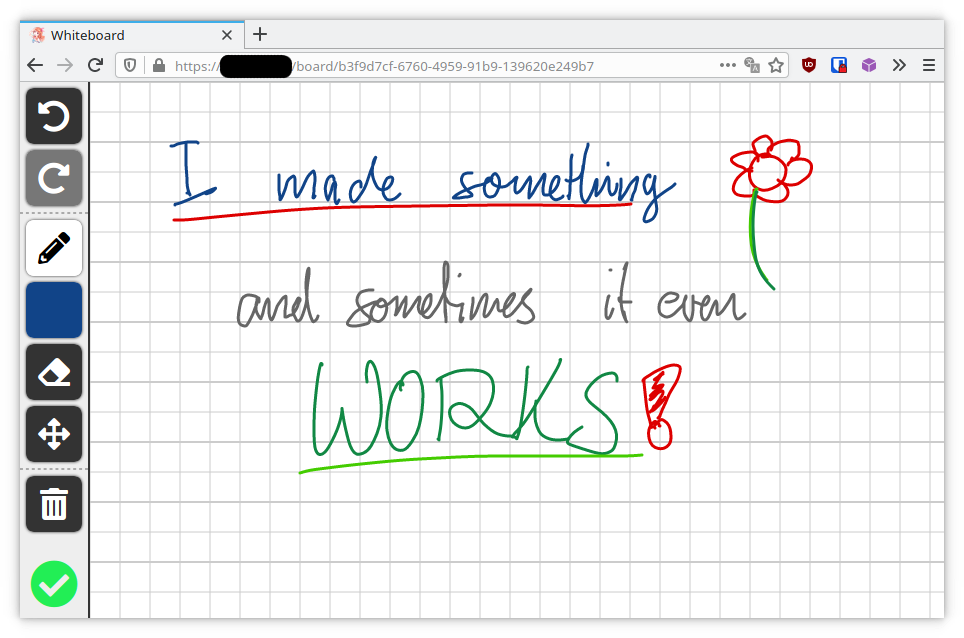 Whiteboard
https:// /board/b3f9d7cf-6760-4959-91b9-139620e249b7
I made something
and sometimes it even
WORKS!